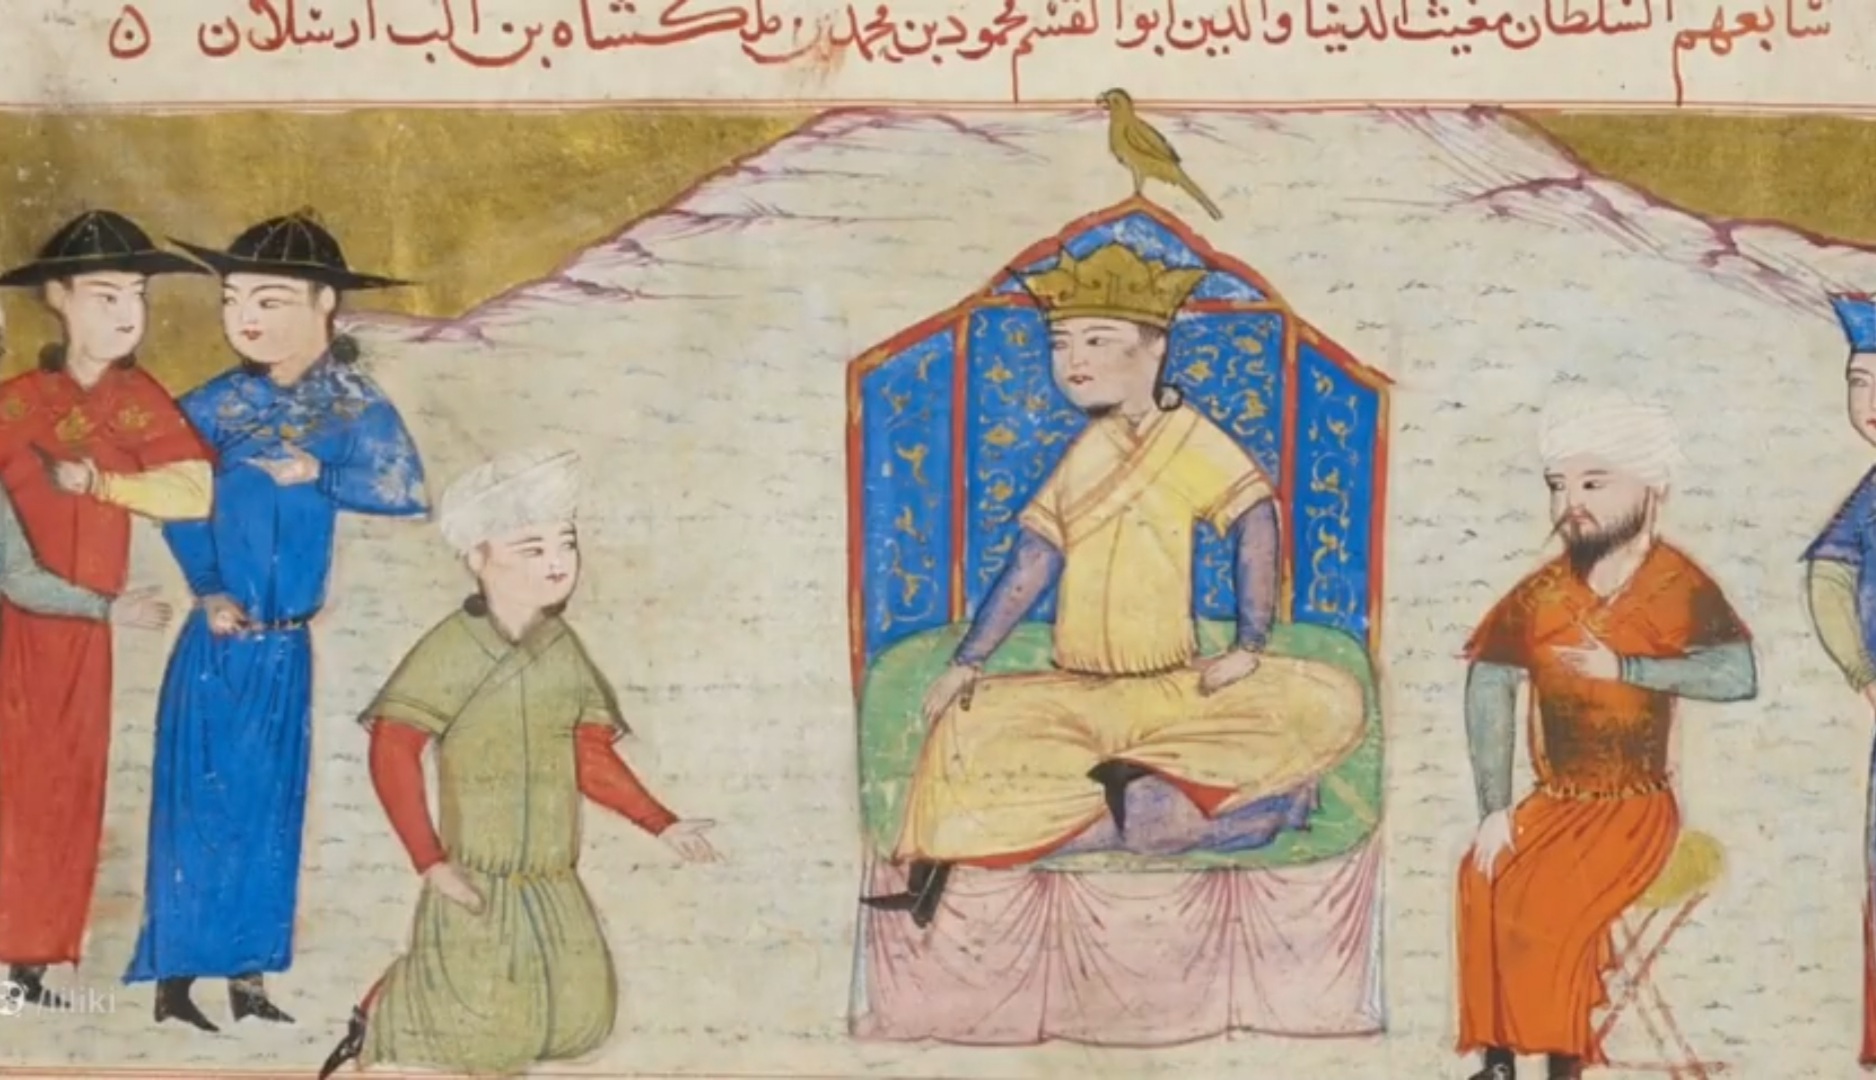 سابعهم السلطان مغيث الدنيا والدين ابوالقسم محمود بن محمد بن ملكشاه بن الب ارسلان ن
/liliki